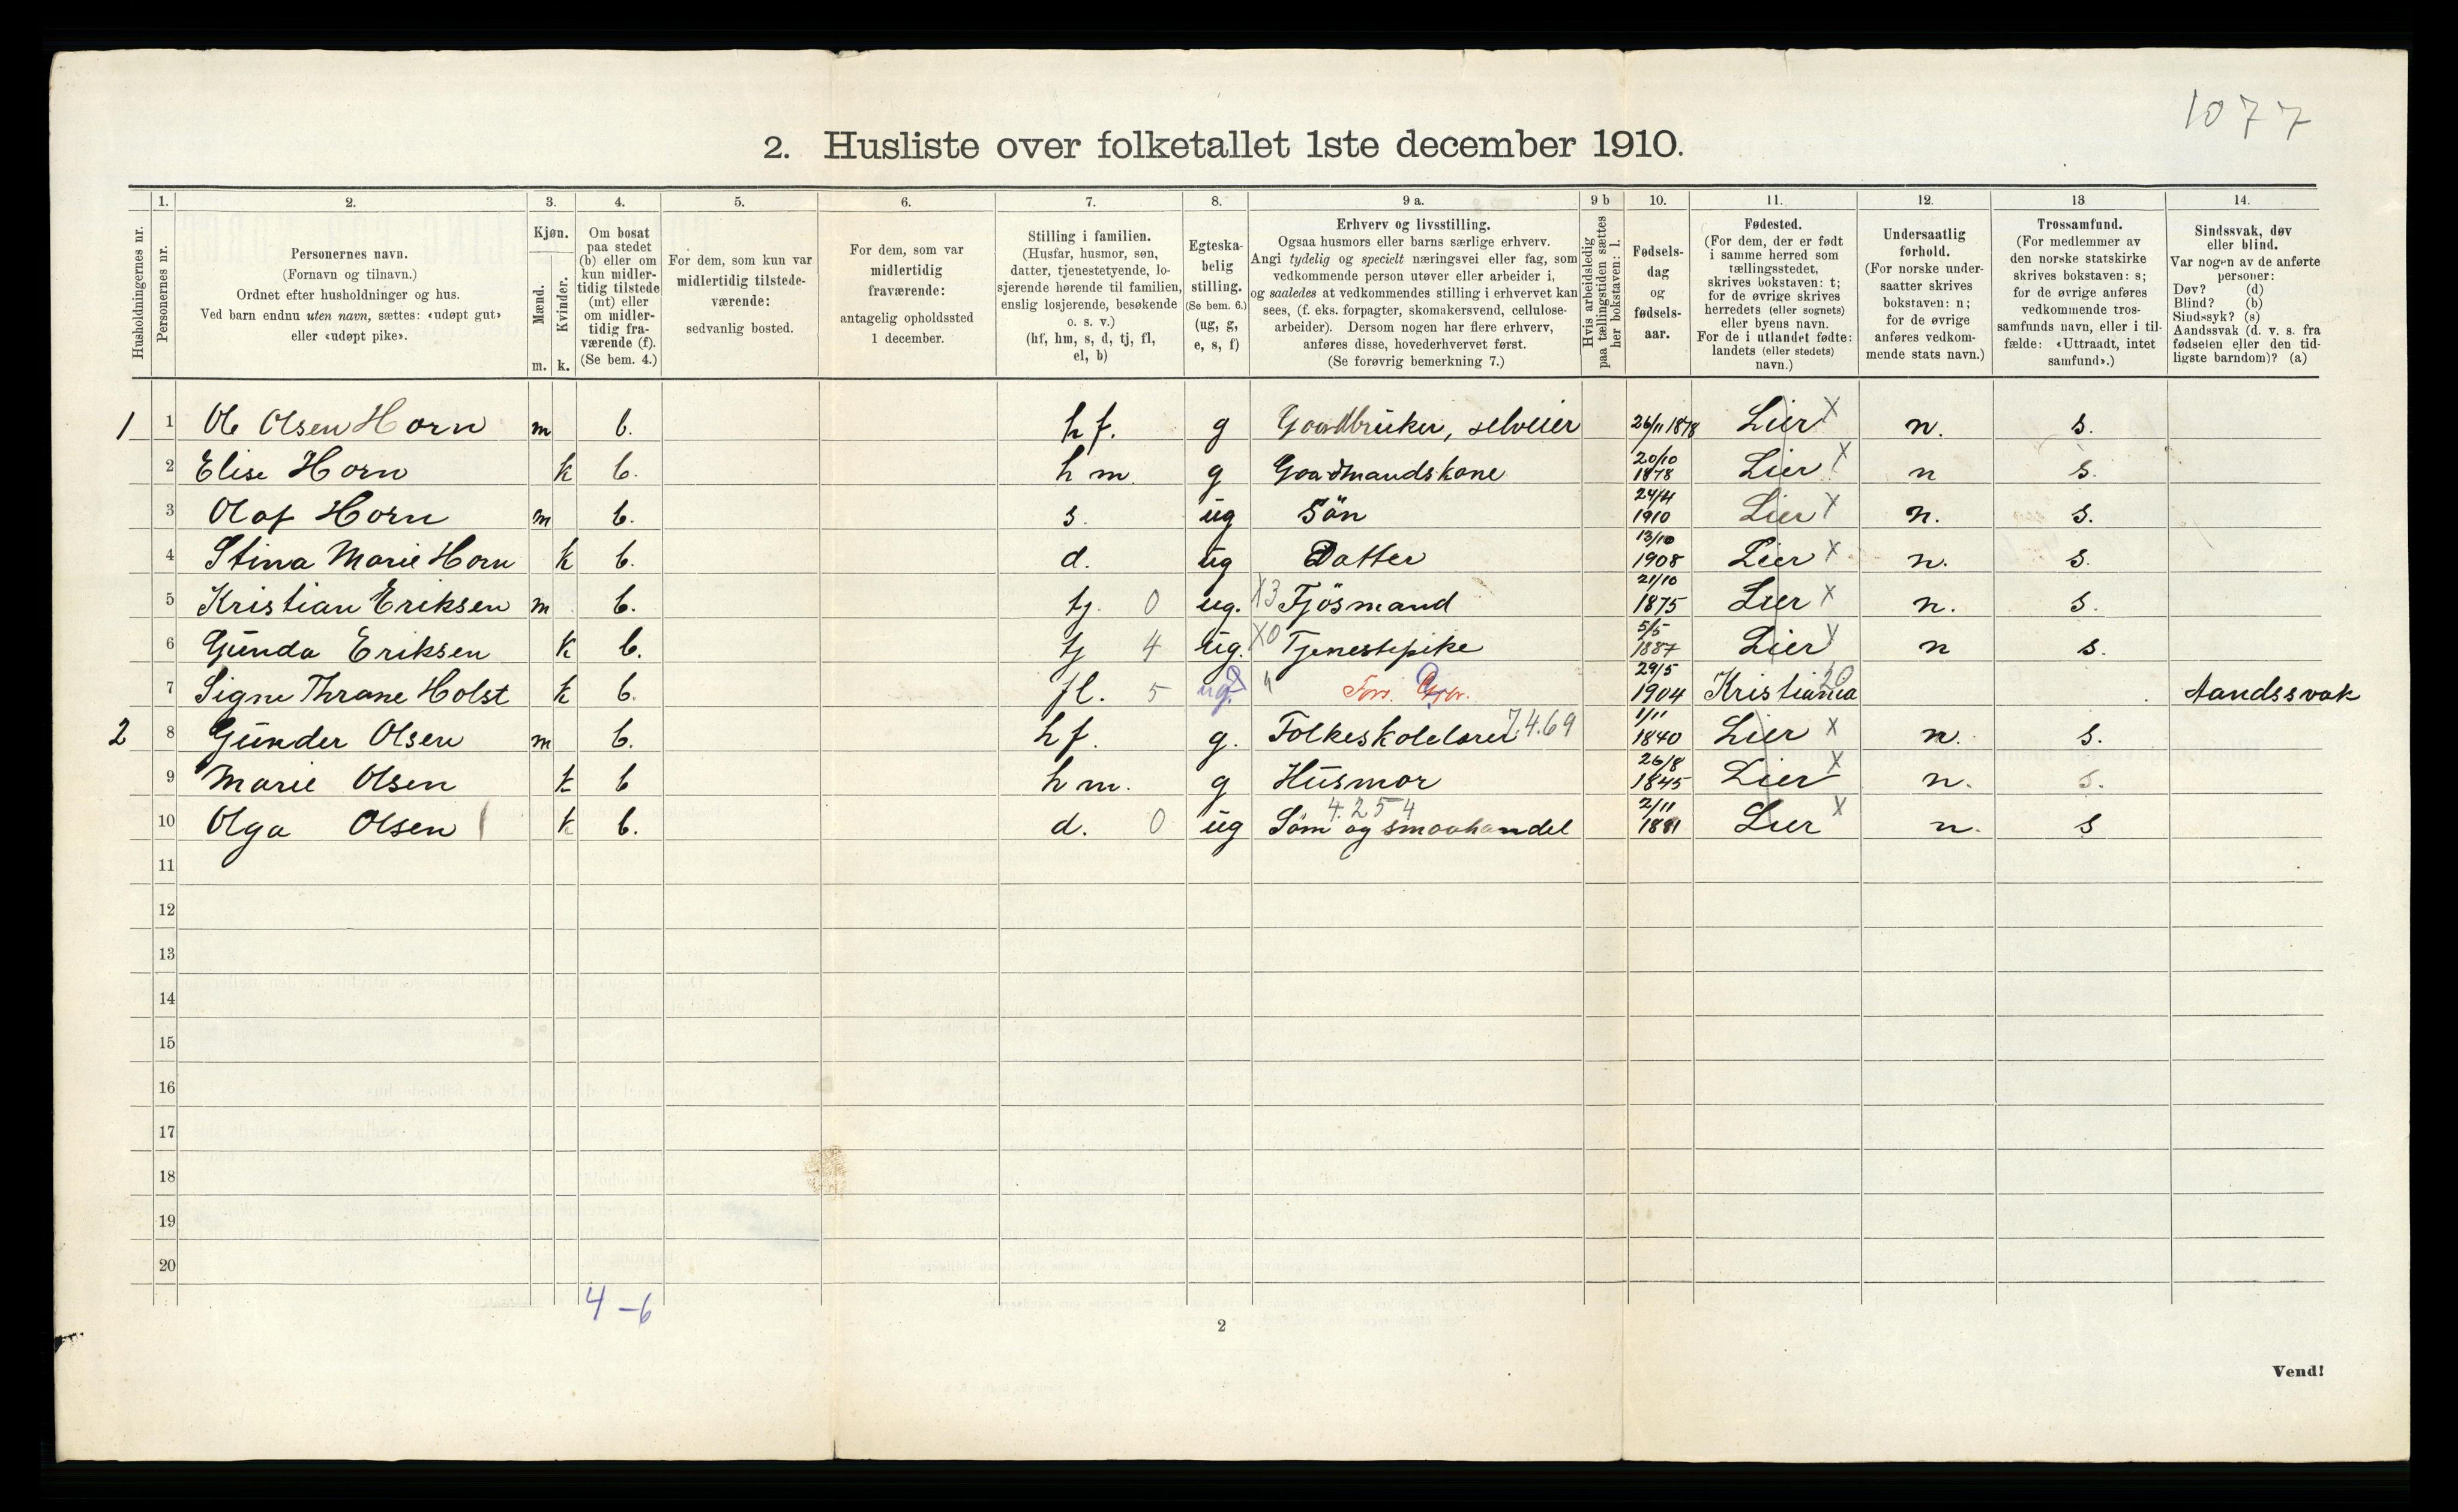 1077
2. Husliste over folketallet 1ste december 1910.
1. 2. 3. 4. 5. 6. 7. 8. 9 a. 9 b 10. 11. 12. 13 14.
Husholdningernes nr.
Personernes nr.
Personernes navn.
(Fornavn og tilnavn.)
Ordnet efter husholdninger og hus.
Ved barn endnu uten navn, sættes: «udøpt gut»
eller «udøpt pike».
Kjøn.
Mænd.
Kvinder.
m. k.
Om bosat
paa stedet
(b) eller om
kun midler-
tidig tilstede
(mt) eller
om midler-
tidig fra-
værende (f).
(Se bem. 4.)
For dem, som kun var
midlertidig tilstede-
værende:
sedvanlig bosted.
For dem, som var
midlertidig
fraværende:
antagelig opholdssted
1 december.
Stilling i familien.
(Husfar, husmor, søn,
datter, tjenestetyende, lo-
sjerende hørende til familien,
enslig losjerende, besøkende
o. s. v.)
(hf, hm, s, d, tj, fl,
el, b)
Egteska-
belig
stilling.
(Se bem. 6.)
(ug, g,
e, s, f)
Erhverv og livsstilling.
Ogsaa husmors eller barns særlige erhverv.
Angi tydelig og specielt næringsvei eller fag, som
vedkommende person utøver eller arbeider i,
og saaledes at vedkommendes stilling i erhvervet kan
sees, (f. eks. forpagter, skomakersvend, cellulose-
arbeider). Dersom nogen har flere erhverv,
anføres disse, hovederhvervet først.
(Se forøvrig bemerkning 7.)
Hvis arbeidsledig
paa tællingstiden sættes
her bokstaven: l.
Fødsels-
dag
og
fødsels-
aar.
Fødested.
(For dem, der er født
i samme herred som
tællingsstedet,
skrives bokstaven: t;
for de øvrige skrives
herredets (eller sognets)
eller byens navn.
For de i utlandet fødte:
landets (eller stedets)
navn.)
Undersaatlig
forhold.
(For norske under-
saatter skrives
bokstaven: n;
for de øvrige
anføres vedkom-
mende stats navn.)
Trossamfund.
(For medlemmer av
den norske statskirke
skrives bokstaven: s;
for de øvrige anføres
vedkommende tros-
samfunds navn, eller i til-
fælde: «Uttraadt, intet
samfund».)
Sindssvak, døv
eller blind.
Var nogen av de anførte
personer:
Døv? (d)
Blind? (b)
Sindssyk? (s)
Aandssvak (d. v. s. fra
fødselen eller den tid-
ligste barndom)? (a)
1 1 Ole Olsen Horn m b. hf. g Gaardbruker, selveier 26/11 1878 Lier X n. s.
2 Elise Horn k b. hm. g Gaardmandskone 20/10 1878 Lier X n s.
3 Olaf Horn m b. s. ug Sön 24/4 1910 Lier X n. s.
4 Stina Marie Horn k b. d. ug Datter 13/10 1908 Lier X n. s.
5 Kristian Eriksen m b. tj. 0 ug. X3 Fjösmand 21/10 1875 Lier X n. s.
6 Gunda Eriksen k b. tj 4 ug. X0 Tjenestepike 5/5 1887 Lier X n s.
7 Signe Thrane Holst k b. fl. 5 ug. 29/5 1904 Kristiania 20 Aandssvak
2 8 Gunder Olsen m b. hf. g. Folkeskolelærer 7.4.69 1/11 1840 Lier X n. s.
9 Marie Olsen k b hm. g Husmor 26/8 1845 Lier X n. s.
10 Olga Olsen k b. d. 0 ug Söm og smaahandel 4.254 2/11 1881 Lier X n. s
11
12
13
14
15
16
17
18
19
20
4 – 6
2
Vend!